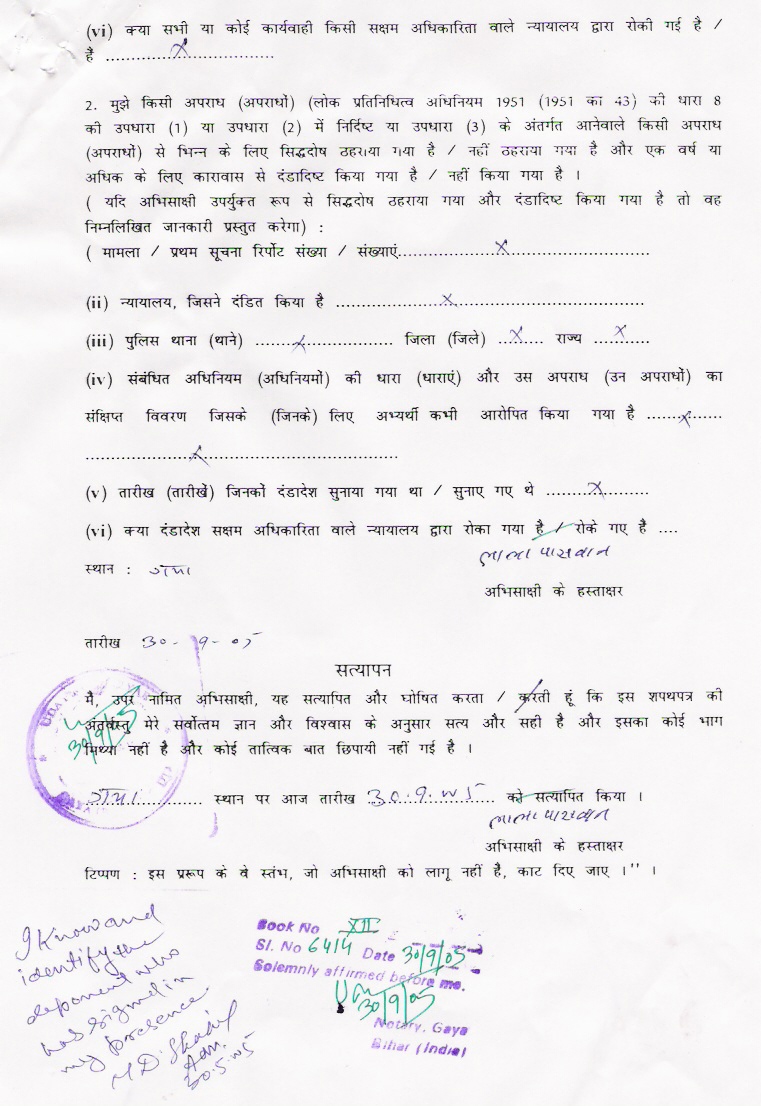 (vi) क्या सभी या कोई कार्यवाही किसी सक्षम अधिकारिता वाले न्यायालय द्वारा रोकी गई है /
है ....X............................
2. मुझे किसी अपराध (अपराधों) (लोक प्रतिनिधित्व अधिनियम 1951 (1951 का 43) की धारा 8
की उपधारा (1) या उपधारा (2) में निर्दिष्ट या उपधारा (3) के अंतर्गत आनेवाले किसी अपराध
(अपराधों) से भिन्न के लिए सिद्धदोष ठहराया गया है / नहीं ठहराया गया है और एक वर्ष या
अधिक के लिए कारावास से दंडादिष्ट किया गया है / नहीं किया गया है ।
( यदि अभिसाक्षी उपर्युक्त रूप से सिद्धदोष ठहराया गया और दंडादिष्ट किया गया है तो वह
निम्नलिखित जानकारी प्रस्तुत करेगा) :
( मामला / प्रथम सूचना रिर्पोट संख्या / संख्याएं..................X............................
(ii) न्यायालय, जिसने दंडित किया है ....................X....................................
(iii) पुलिस थाना (थाने) ........X................ जिला (जिले) ..X..... राज्य ....X.....
(iv) संबंधित अधिनियम (अधिनियमों) की धारा (धाराएं) और उस अपराध (उन अपराधों) का
संक्षिप्त विवरण जिसके (जिनके) लिए अभ्यर्थी कभी आरोपित किया गया है ......X......
....................X....................................
(v) तारीख (तारीखें) जिनकों दंडादेश सुनाया गया था / सुनाए गए थे ........X.........
(vi) क्या दंडादेश सक्षम अधिकारिता वाले न्यायालय द्वारा रोका गया है / रोके गए है ....
लाला पासवान
स्थान : गया
अभिसाक्षी के हस्ताक्षर
तारीख 30-9-05
सत्यापन
मै, उपर नामित अभिसाक्षी, यह सत्यापित और घोषित करता / करती हूं कि इस शपथपत्र की
अंतर्वस्तु मेरे सर्वोत्तम ज्ञान और विश्वास के अनुसार सत्य और सही है और इसका कोई भाग
मिथ्या नहीं है और कोई तात्विक बात छिपायी नहीं गई है ।
30/9/05
गया............ स्थान पर आज तारीख 30.9.05 को सत्यापित किया ।
लाला पासवान
अभिसाक्षी के हस्ताक्षर
टिप्पण : इस प्ररूप के वे स्तंभ, जो अभिसाक्षी को लागू नहीं है, काट दिए जाए ।'' ।
I Know and
identify the
deponent who
has signed in
my presence
MD. Shadif
Adv.
30.5.05
Book No XII
Sl. No 6414 Date 30/9/05
Solemnly affirmed before me.
30/9/05
Notary, Gaya
Bihar (India)